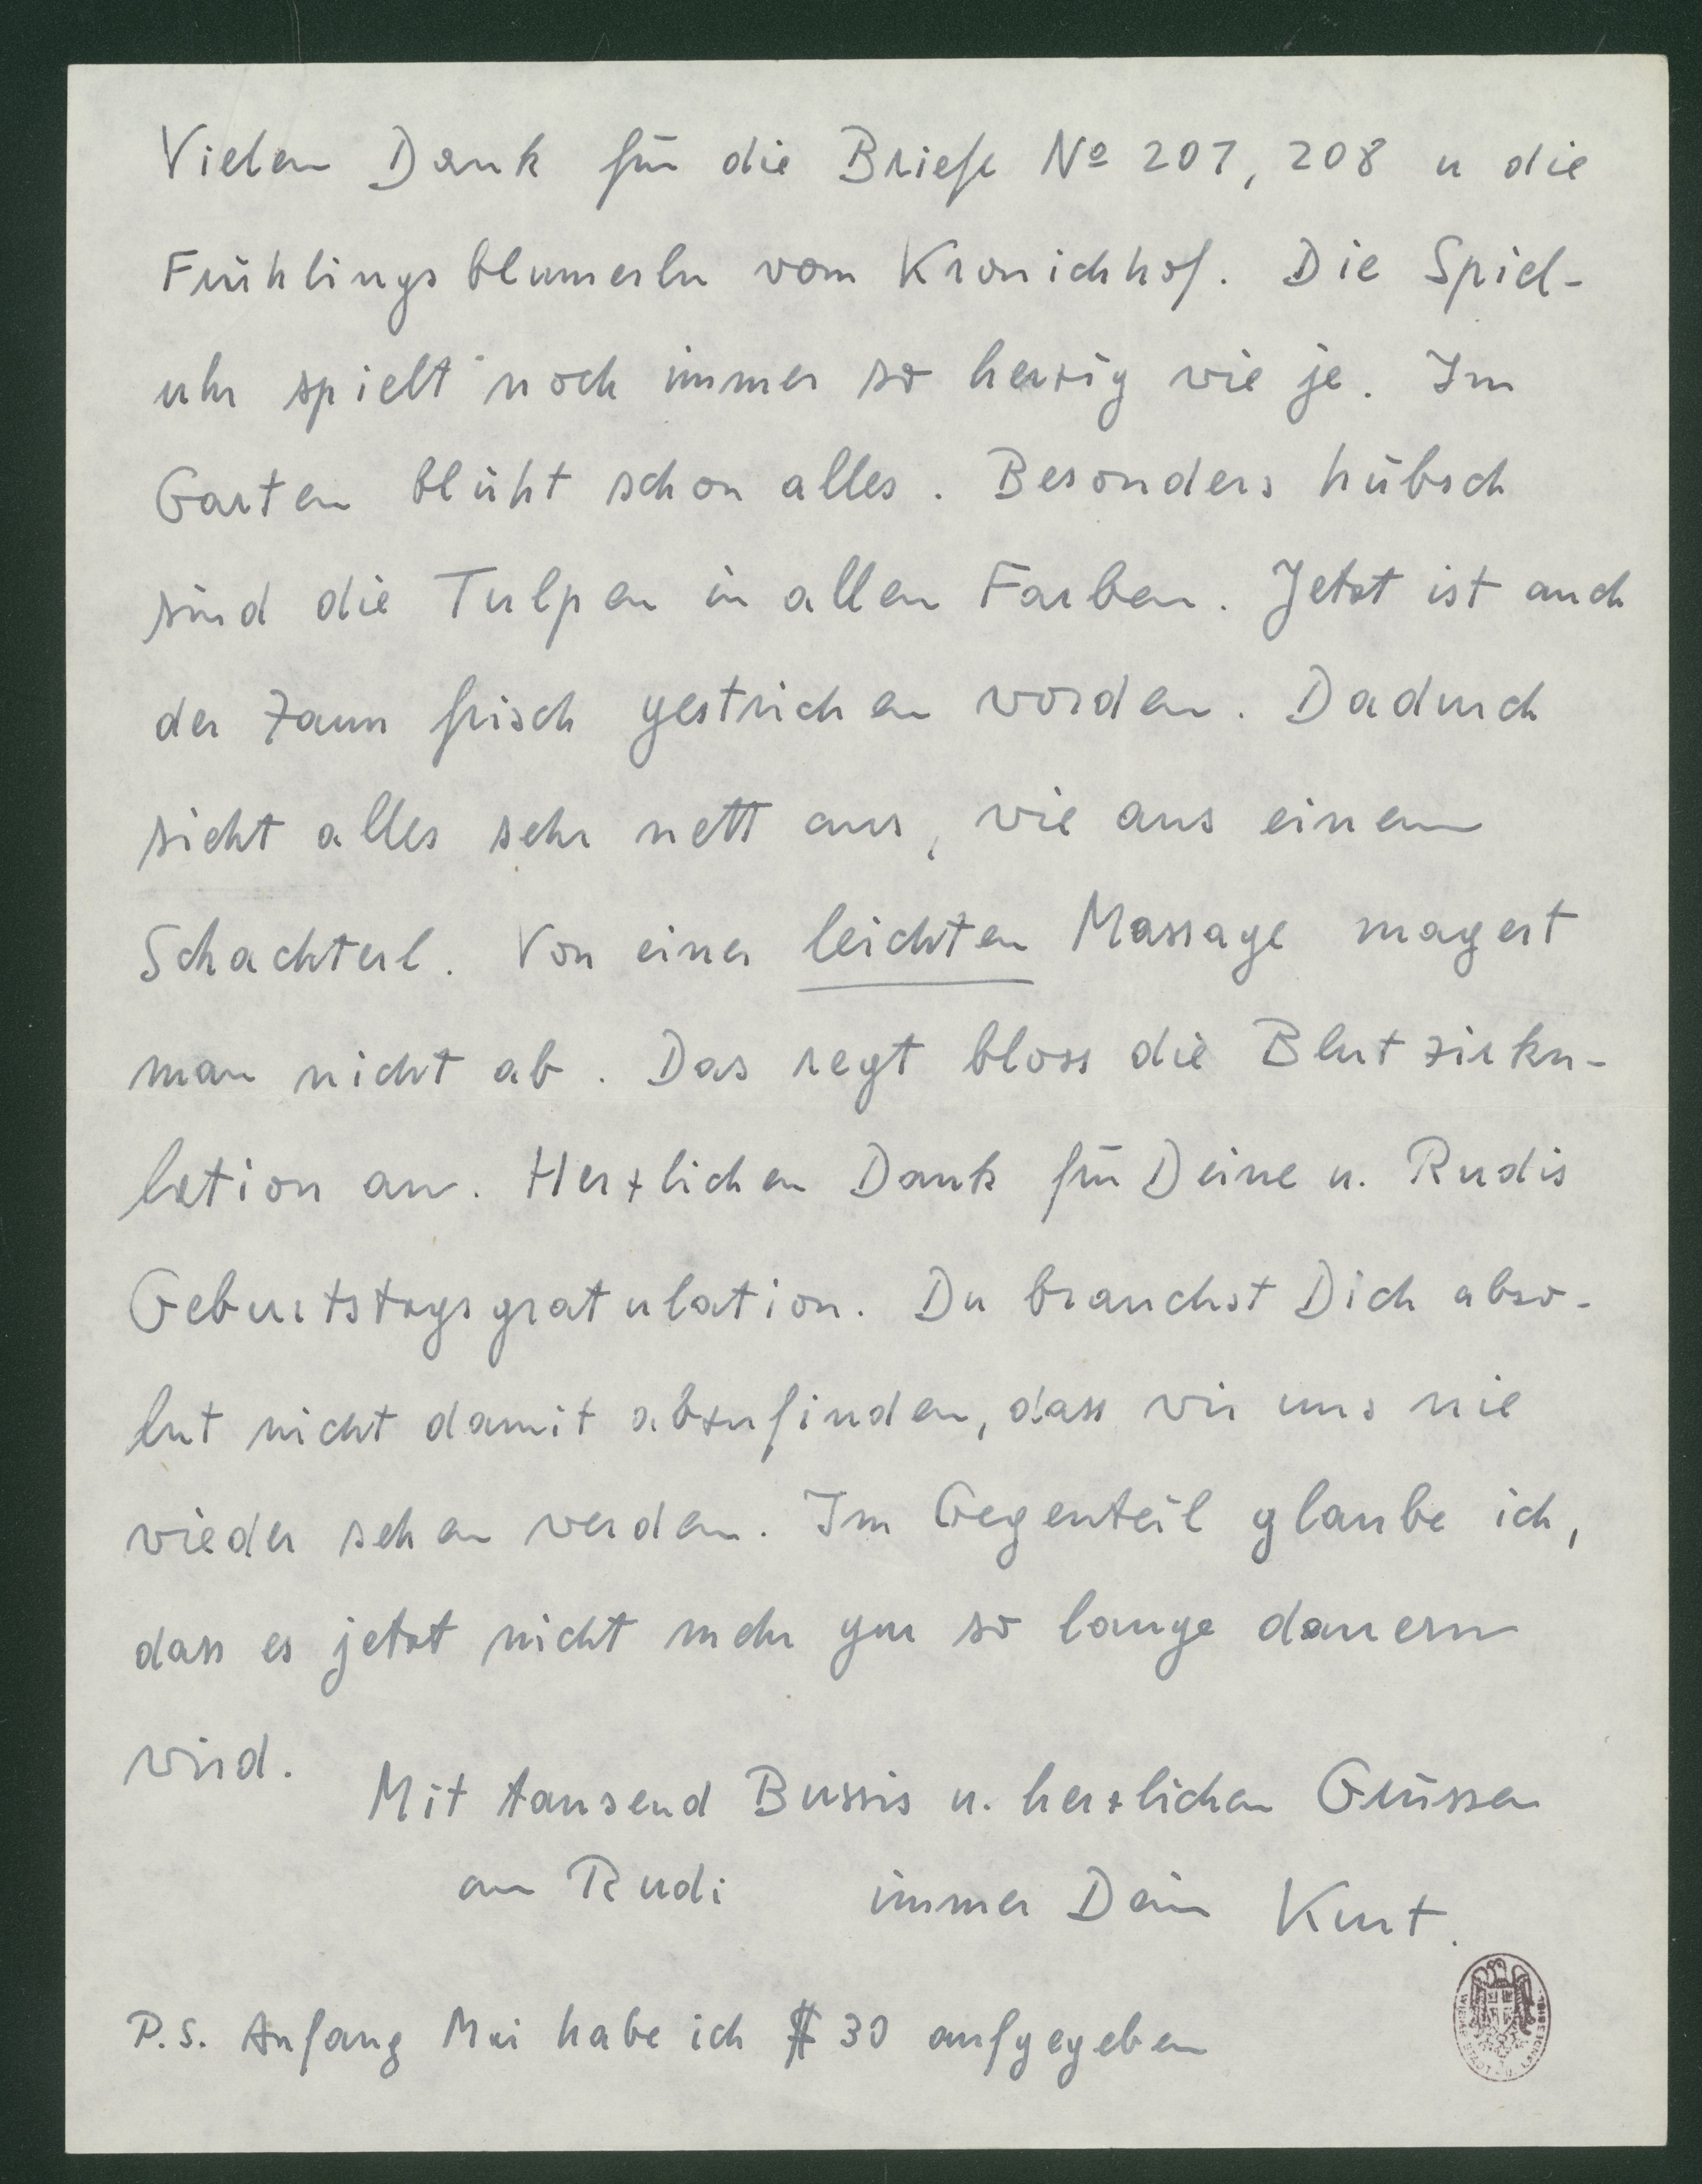 Vielen Dank für die Briefe Nº 207, 208 u die
Frühlingsblumerln vom Kronichhof. Die Spiel-
uhr spielt noch immer so herzig wie je. Im
Garten blüht schon alles. Besonders hübsch
sind die Tulpen in allen Farben. Jetzt ist auch
der Zaun frisch gestrichen worden. Dadurch
sieht alles sehr nett aus, wie aus einem
Schachterl. Von einer leichten Massage magert
man nicht ab. Das regt bloss die Blutzirku-
lation an. Herzlichen Dank für Deine u. Rudis
Geburtstagsgratulation. Du brauchst Dich abso-
lut nicht damit abzufinden, dass wir uns nie
wieder sehen werden. Im Gegenteil glaube ich,
dass es jetzt nicht mehr gar so lange dauern
wird.
Mit tausend Bussis u. herzlichen Grüssen
an Rudi immer Dein Kurt.
P.S. Anfang Mai habe ich $ 30 aufgegeben